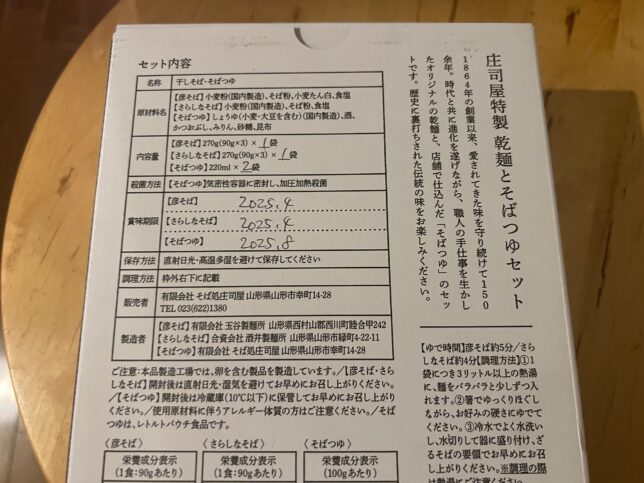 セット内容
名称 干しそば・そばつゆ
原材料名 【彦そば】小麦粉(国内製造)、そば粉、小麦たん白、食塩
【さらしなそば】小麦粉(国内製造)、そば粉、食塩
【そばつゆ】しょうゆ(小麦・大豆を含む)(国内製造)、酒、
かつおぶし、みりん、砂糖、昆布
内容量 【彦そば】270g(90g×3) × 1袋
【さらしなそば】270g(90g×3) × 1袋
【そばつゆ】220ml × 2袋
殺菌方法 【そばつゆ】気密性容器に密封し、加圧加熱殺菌
賞味期限 【彦そば】 2025.4
【さらしなそば】 2025.4
【そばつゆ】 2025.8
保存方法 直射日光・高温多湿を避けて保存してください
調理方法 枠外右下に記載
販売者 有限会社 そば処庄司屋 山形県山形市幸町14-28
TEL 023(622)1380
製造者 【彦そば】有限会社 玉谷製麺所 山形県西村山郡西川町睦合甲242
【さらしなそば】合資会社 酒井製麺所 山形県山形市緑町4-22-11
【そばつゆ】有限会社 そば処庄司屋 山形県山形市幸町14-28
ご注意:本品製造工場では、卵を含む製品を製造しています。/【彦そば・さら
しなそば】開封後は直射日光・湿気を避けてお早めにお召し上がりください。
/【そばつゆ】開封後は冷蔵庫(10℃以下)に保管してお早めにお召し上がりく
ださい。/使用原材料に伴うアレルギー体質の方はご注意ください。/そばつ
ゆは、レトルトパウチ食品です。
〈彦そば〉
栄養成分表示
(1食:90gあたり)
〈さらしなそば〉
栄養成分表示
(1食:90gあたり)
〈そばつゆ〉
栄養成分表示
(100gあたり)
庄司屋特製 乾麺とそばつゆセット
1864年の創業以来、愛されてきた味を守り続けて150
余年。時代と共に進化を遂げながら、職人の手仕事を生かし
たオリジナルの乾麺と、店舗で仕込んだ「そばつゆ」のセッ
トです。歴史に裏打ちされた伝統の味をお楽しみください。
【ゆで時間】彦そば約5分/さら
しなそば約4分【調理方法】①1
袋につき3リットル以上の熱湯
に、麺をパラパラと少しずつ入れ
ます。②箸でゆっくりほぐし
ながら、お好みの硬さにゆでて
ください。③冷水でよく水洗い
し、水切りして器に盛り付け、ざ
るそばの要領でお早めにお召
し上がりください。※調理の際
は熱湯にご注意ください。